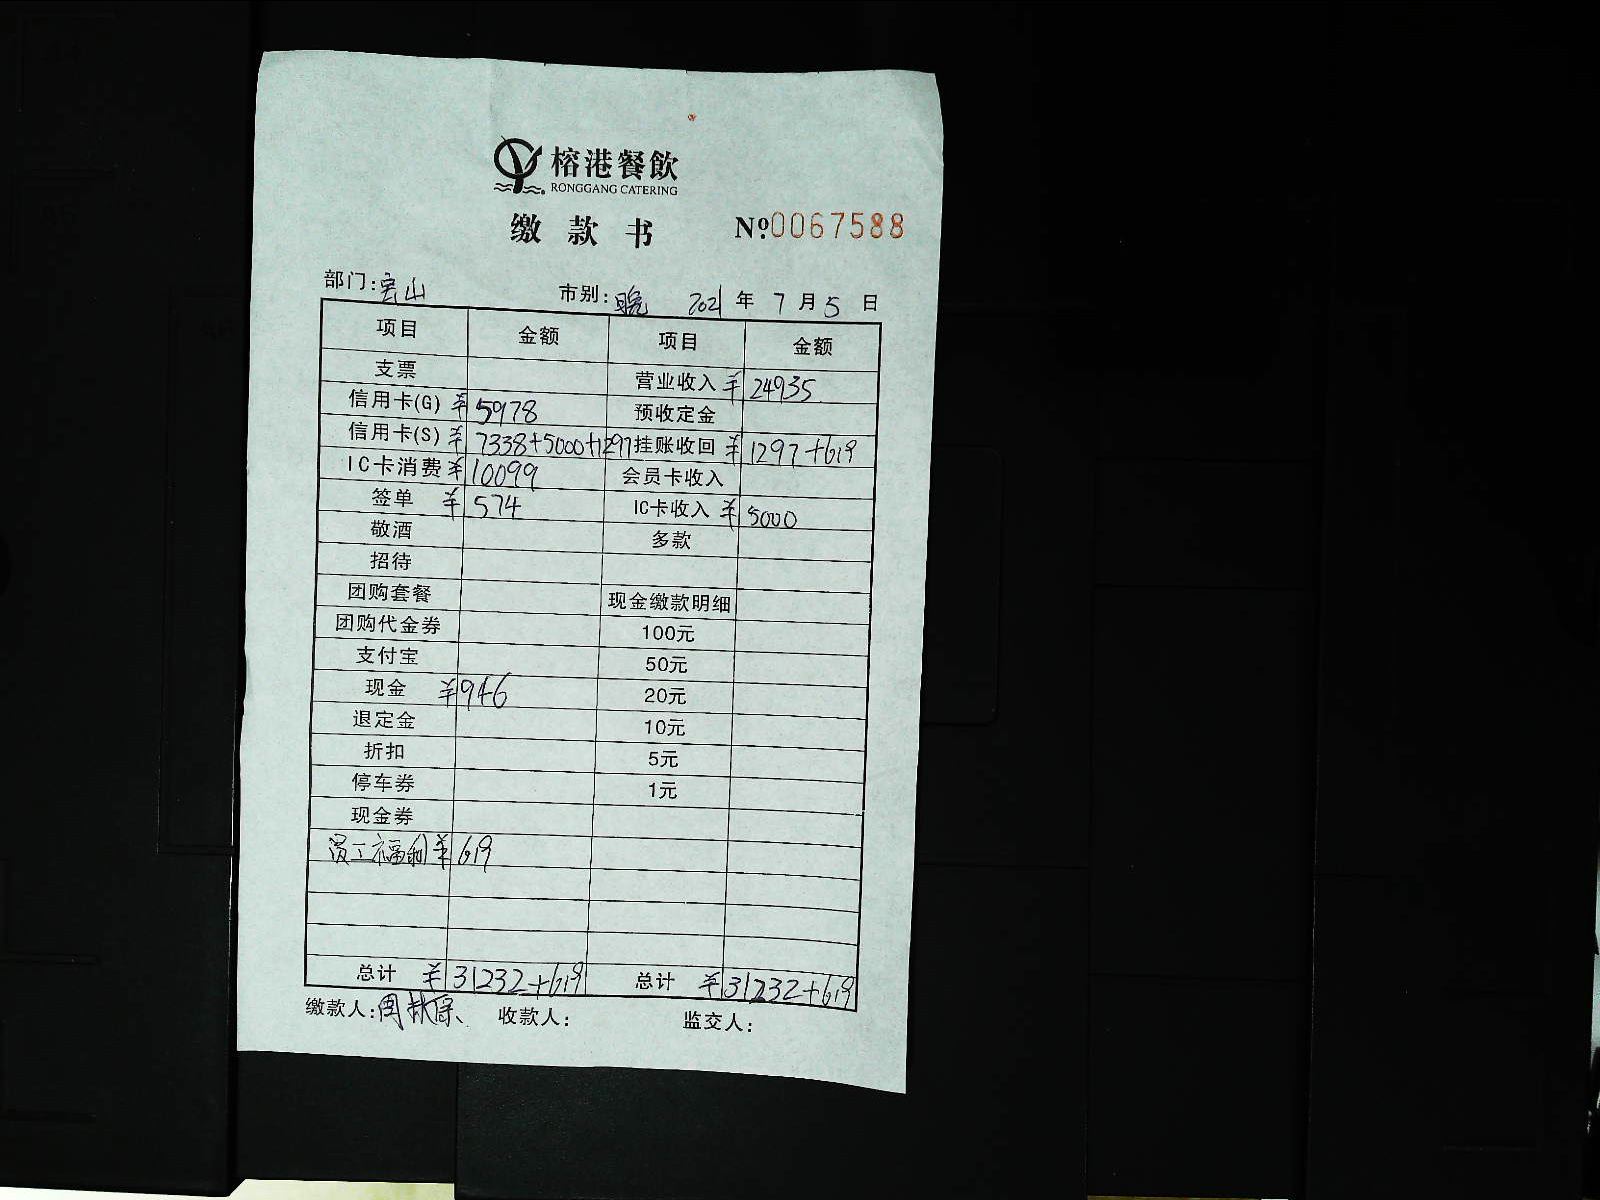 榕港餐飲
RONGGANG CATERING
缴款书 №0067588
部门:宝山 市别:晚 2021年7月5日
项目 金额 项目 金额
支票 营业收入 ¥24935
信用卡(G) ¥5978 预收定金
信用卡(S) ¥7338+5000+1297 挂账收回 ¥1297+619
IC卡消费 ¥10099 会员卡收入
签单 ¥574 IC卡收入 ¥5000
敬酒 多款
招待
团购套餐 现金缴款明细
团购代金券 100元
支付宝 50元
现金 ¥946 20元
退定金 10元
折扣 5元
停车券 1元
现金券
员工福利 ¥619
总计 ¥31232+619 总计 ¥31232+619
缴款人:周 收款人: 监交人: